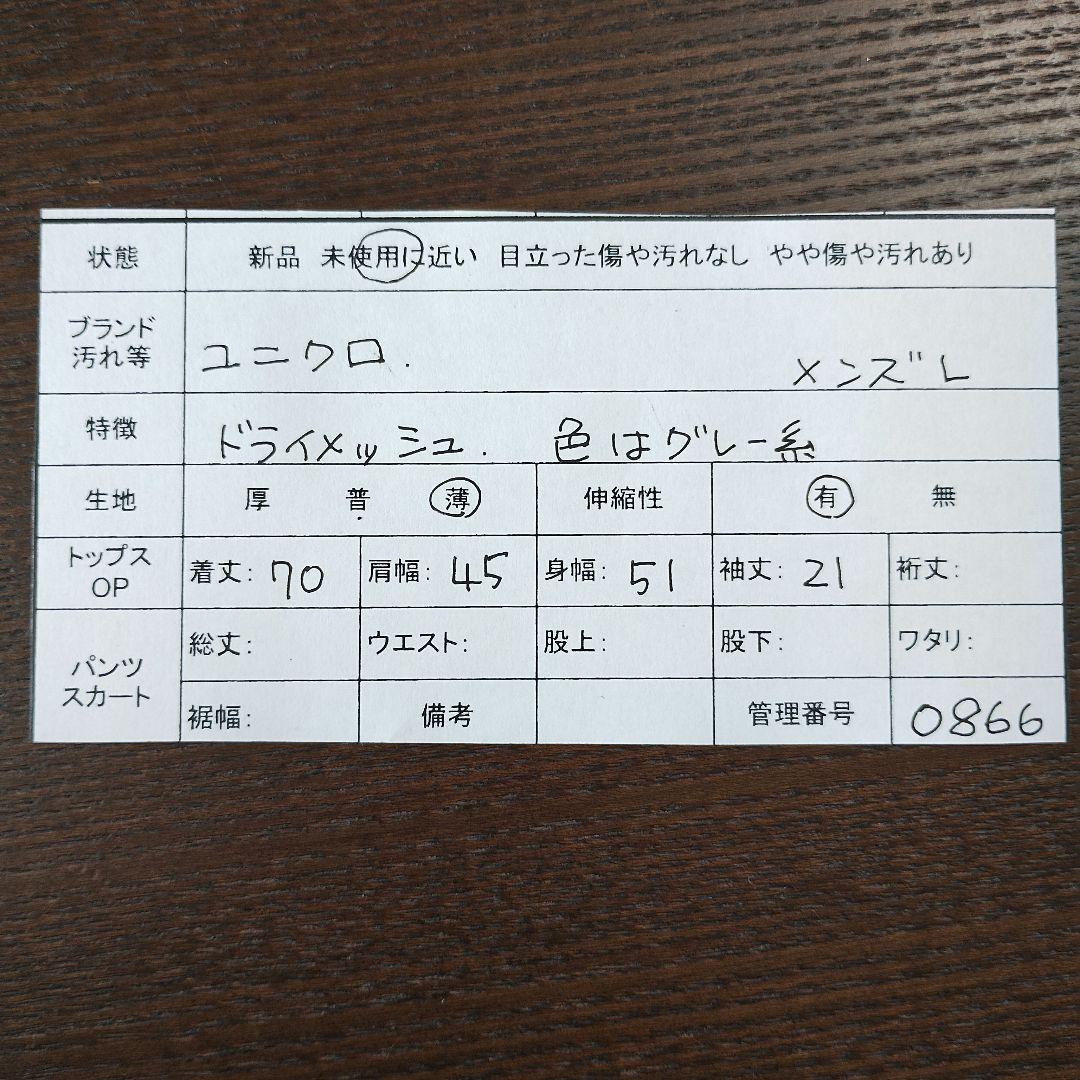 状態 新品 未使用に近い 目立った傷や汚れなし やや傷や汚れあり
ブランド
汚れ等 ユニクロ. メンズL
特徴 ドライメッシュ. 色はグレー系
生地 厚 普 薄 伸縮性 有 無
トップス
OP 着丈: 70 肩幅: 45 身幅: 51 袖丈: 21 裄丈:
パンツ
スカート 総丈: ウエスト: 股上: 股下: ワタリ:
裾幅: 備考 管理番号 0866